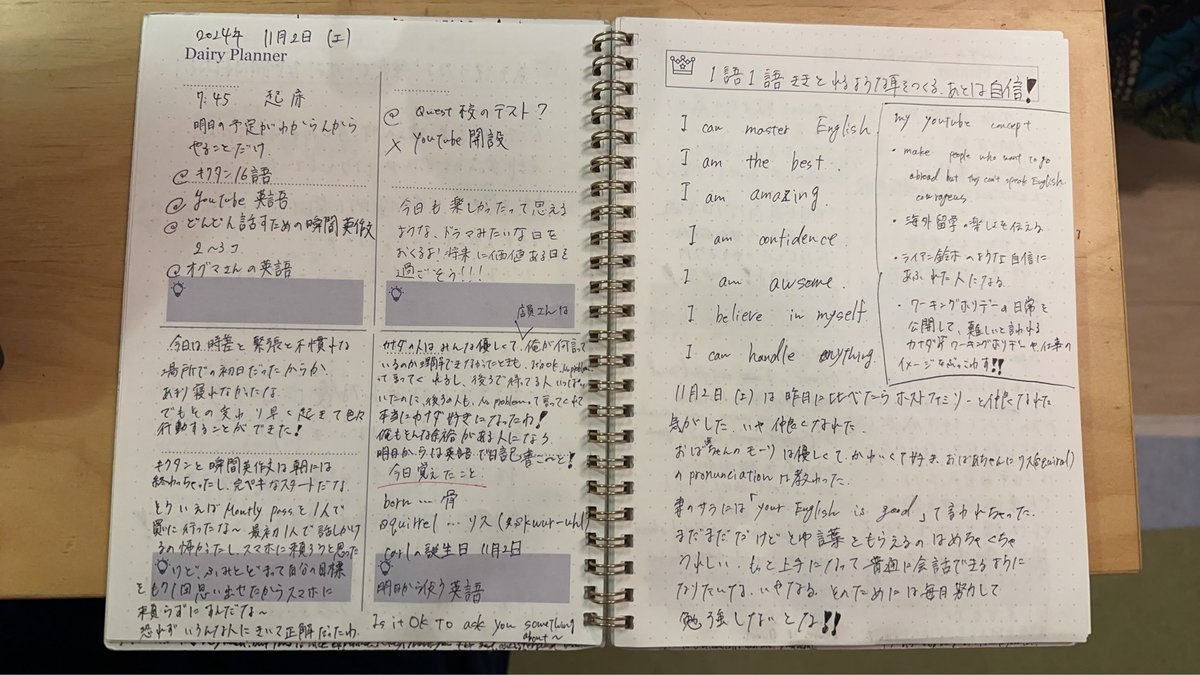 2024年 11月2日 (土)
Dairy Planner
7:45 起床
明日の予定がわからんから
やることだけ.
@ キクタン16語
@ Youtube 英語
@ どんどん話すための瞬間英作文
2〜3コ
@ オグマさんの英語
今日は、時差と緊張と不慣れな
場所での初日だったからか、
あまり寝れなかったな.
でもその変わり早く起きて色々
行動することができた!
キクタンと瞬間英作文は朝には
終わっちゃったし、完ペキなスタートだな.
そういえば Montly passを1人で
買いに行ったな〜 最初1人で話しかけ
るの怖かったし、スマホに頼ろうと思った
けど、ふみとどまって自分の目標
をもう1回思い出せたからスマホに
頼らずにすんだな〜
恐れず いろんな人にきいて正解だったわ.
@ Quest校のテスト?
× YouTube 開設
今日も楽しかったって思える
ような、ドラマみたいな日を
おくるよ!将来に価値ある日を
過ごそう!!!
店員さんは
カナダの人は、みんな優しくて、俺が何言って
いるのか理解できなかったときも、No problem
って言ってくれるし、後ろで待ってる人いっぱい
いたのに、後ろの人も、No problemって言ってくれて
本当にカナダ好きになったわ!
俺もそんな余裕がある人になろう.
明日からは英語で日記書こーっと!
今日覚えたこと
born … 骨
squirrel … リス (skwur-uhl)
carlの誕生日 11月2日
明日から使う英語
Is it OK to ask you something
about〜
1語1語ききとれるような耳をつくる、あとは自信!
I can master English.
I am the best.
I am amazing.
I am confidence.
I am awsome.
I believe in myself
I can handle anything.
my youtube concept
・make people who want to go
abroad but they can't speak English
courageus
・海外留学の楽しさを伝える
・ライアン鈴木のような自信に
あふれた人になる.
・ワーキングホリデーの日常を
公開して、難しいと言われる
カナダのワーキングホリデーや仕事の
イメージをぶっこわす!!
11月2日.(土)は昨日に比べたらホストファミリーと仲良くなれた
気がした.いや仲良くなれた.
おばあちゃんのモーリーは優しくて、かわいくて好き、おばあちゃんにリス(squirrel)
のpronunciationは教わった.
妻のサラには「your English is good」って言われちゃった.
まだまだだけどその言葉をもらえるのはめちゃくちゃ
うれしい.もっと上手になって普通に会話できるように
なりたいな、いやなる.そのためには毎日努力して
勉強しないとな!!